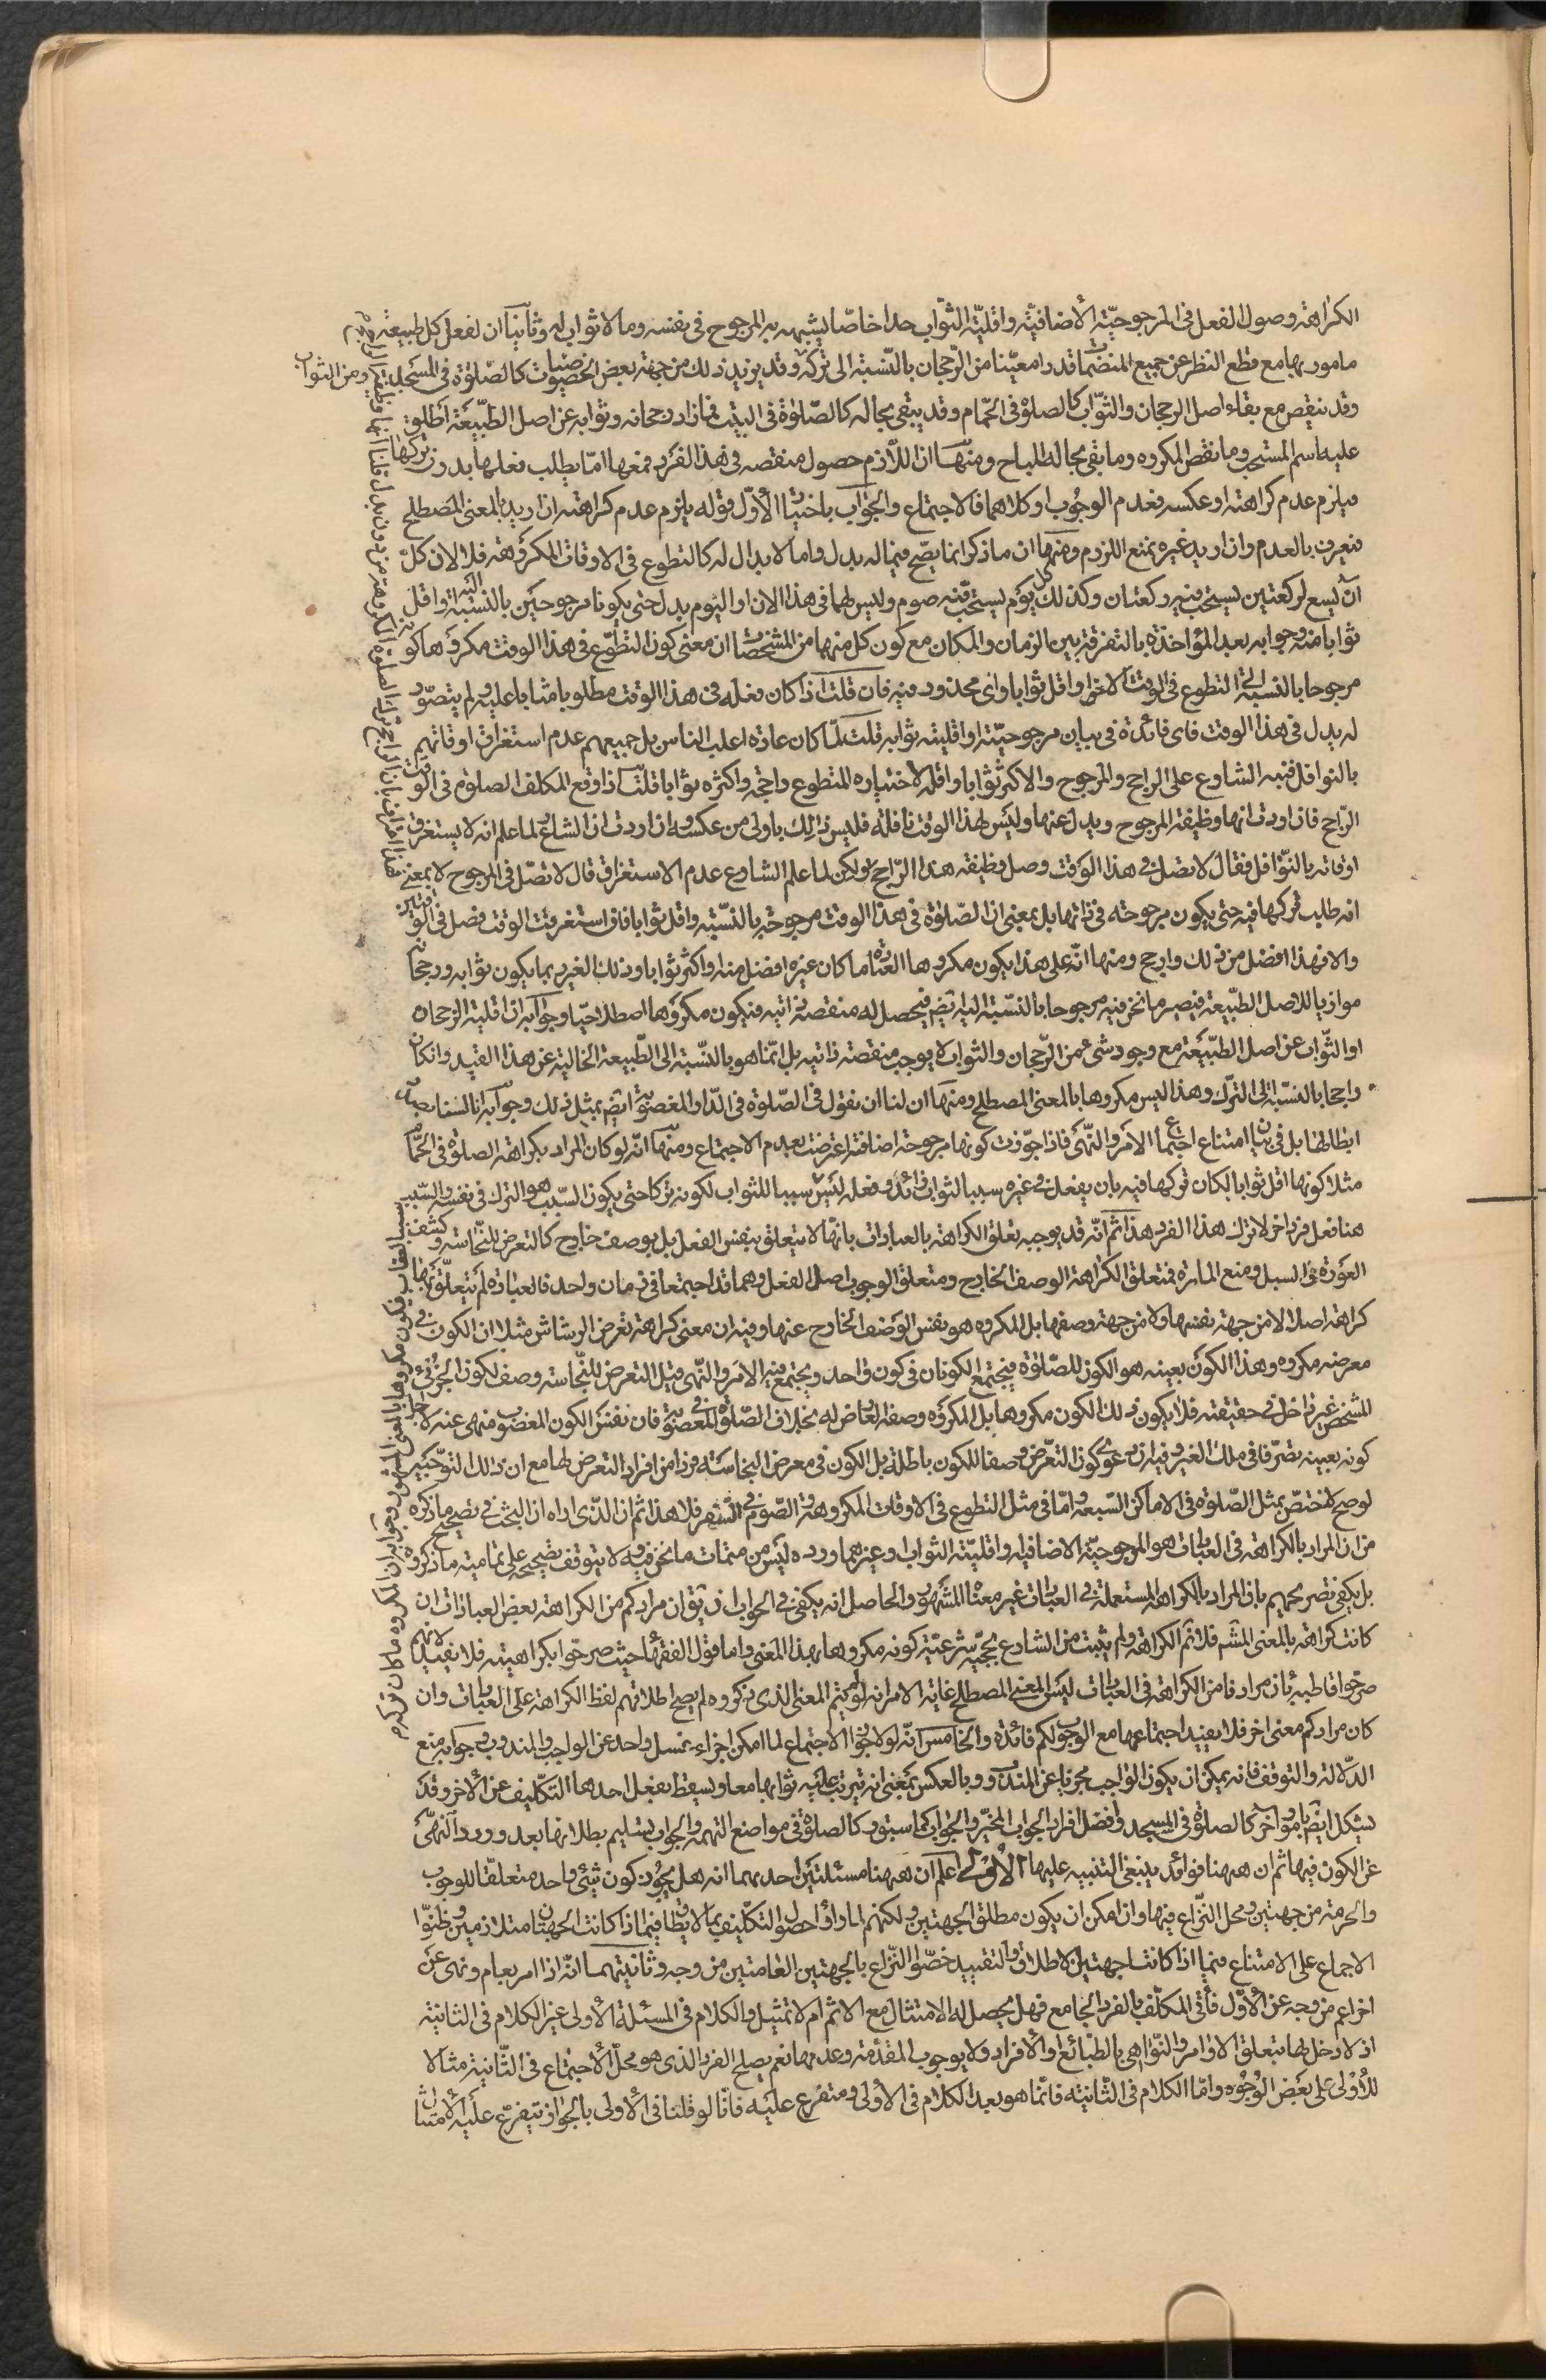 الكراهة وصول الفعل فى المرجوحيّة الأضافيّة واقليّة الثوّاب حدا خاصّا يشبهه به المرجوح فى نفسه وما لا ثواب له وثانيا ان لفعل كل طبيعة
مامور بها مع قطع النظر عن جميع المنضمّات قدرا معيّنا من الرّجحان بالنّسبة الى تركه وقد يزيد ذلك من جهة بعض الخصوصيات كالصّلوة فى المسجد
وقد ينقص مع بقاء اصل الرجحان والثوّاب كالصلوة فى الحّمام وقد يبقى بحاله كالصّلوة فى البيت فما زاد رجحانه وثوابه عن اصل الطبّيعة اطلق
عليه اسم المستحب وما نقص المكروه وما بقى بحاله المباح ومنها ان اللّازم حصول منقصة فى هذا الفرد فمعها امّا يطلب فعلها بدون تركها
فيلزم عدم كراهته او عكسه فعدم الوجوب او كلاهما فالاجتماع والجواب باختيار الأوّل قوله يلزم عدم كراهته ان اريد بالمعنى المصطلح
فنعترف بالعدم وان اريد غيره يمنع اللزوم ومنها ان ما ذكر انما يصّح فيما له بدل واما لا بدال له كالتطوع فى الاوقات المكروهة فلا لان كلّ
آن يسع لركعتين يستحب فيه ركعتان وكذلك كل يوم يستحب فيه صوم وليس لهما فى هذا الان او اليوم بدل حتى يكونا مرجوحين بالنسبة اليه واقل
ثوابا منه وجوابه بعد المؤاخذة بالتفرقة بين الزمان والمكان مع كون كل منهما من المشخصات ان معنى كون التطوّع فى هذا الوقت مكروها كونه
مرجوحا بالنسبة الى التطوع فى الوقت الاخر واقل ثوابا واى محذور فيه فان قلت اذا كان فعله فى هذا الوقت مطلوبا مثابا عليه ولم يتصوّر
له بدل فى هذا الوقت فاى فائدة فى بيان مرجوحيّته او اقليته ثوابه قلت لمّا كان عادة اغلب الناس بل جميعهم عدم استغراق اوقاتهم
بالنوافل فنبه الشارع على الراجح والمرجوح والاكثر ثوابا واقله لاختياره المتطوع راجحه واكثره ثوابا قلت اذا وقع المكلف الصلوة فى الوقت
الرّاجح فان اردت انها وظيفة المرجوح وبدل عنها وليس لهذا الوقت نافلة فليس ذلك باولى من عكسه وان اردت ان الشارع لما علم انه لا يستغرق
اوقاته بالنوّافل فقال لا تصل فى هذا الوقت وصل وظيفة هذا الرّاجح ولكن لما علم الشارع عدم الاستغراق قال لا تصّل فى المرجوح لا بمعنى
انه طلب تركها فيه حتى يكون مرجوحة فى ذاتها بل بمعنى ان الصّلوة فى هذا الوقت مرجوحة بالنسّبة واقل ثوابا فان استغرقت الوقت فصل فى الوقتين
والا فهذا افضل من ذلك وارجح ومنها انّه على هذا يكون مكروها العبادة ما كان غيره افضل منه او اكثر ثوابا وذلك الغير ربما يكون ثوابه ورجحانه
موازيا للاصل الطبّيعة فيصير ما نحن فيه مرجوحا بالنسّبة اليه ايضا فيحصل له منقصة ذاتيه فيكون مكروها اصطلاحيّا وجوابه ان قلية الرّجحان
او الثوّاب عن اصل الطبّيعة مع وجود شئ من الرّجحان والثواب لا يوجب منقصة ذاتيه بل انمّا هو بالنسّبة الى الطّبيعة الخالية عن هذا القيد وان كان
راجحا بالنسّبة الى الترك وهذا ليس مكروها بالمعنى المصطلح ومنها ان لنا ان نقول فى الصّلوة فى الدّار المغصوبة ايضا بمثل ذلك وجوابه انا لسنا بصدد
ابطالها بل فى بيان امتناع اجتماع الامر والنّهى فاذا جوّزت كونها مرجوحة اضافته اعترفت بعدم الاجتماع ومنها انّه لو كان المراد بكراهة الصلوة فى الحمّام
مثلا كونها اقل ثوابا لكان تركها فيه بان يفعل فى غيره سببا لثواب زائد وفعله ليس سببا للثواب لكونه تركا حتى يكون السّبب هو الترك فى نفسه والسّبب
هنا فعل فرد اخر لا ترك هذا الفرد هذا ثم انّه قد يوجه تعلق الكراهة بالعبادات بانّها لا يتعلق بنفس الفعل بل بوصف خارج كالتعرض للنّجاسة وكشف
العورة فى السبل ومنع المارة فمتعلق الكراهة الوصف الخارج ومتعلق الوجوب اصل الفعل وهما قد اجتمعا فى زمان واحد فالعبادة لم يتعلّق بها
كراهة اصلا لا من جهة نفسها ولا من جهة وصفها بل المكروه هو نفس الوصف الخارج عنها وفيه ان معنى كراهة تعرض الرشاش مثلا ان الكون فى
معرضه مكروه وهذا الكون بعينه هو الكون للصّلوة فيجتمع الكونان فى كون واحد ويجتمع فيه الامر والنّهى قيل التعرض للنّجاسة وصف لكون الجزئى
المشخص غير داخل فى حقيقته فلا يكون ذلك الكون مكروها بل المكروه وصفه العارض له بخلاف الصّلوة فى المغصوبة فان نفس الكون المغصوب منهى عنه لاجل
كونه بعينه تصّرفا فى ملك الغير وفيه ان دعوى كون التعرّض وصفا للكون باطلة بل الكون فى معرض النجاسة فرد من افراد التعرض لها مع ان ذلك التوجّيه
لو صح لاختصّ بمثل الصّلوة فى الاماكن السّبعة وامّا فى مثل التطوع فى الاوقات المكروهة والصّوم فى السّفر فلا هذا ثم ان الذّى اراه ان البحث فى تصحيح ما ذكره
من ان المراد بالكراهة فى العبادات هو المرجوحيّة الاضافية واقليّته الثواب وغيرهما ورده ليس من متمات ما نحن فيه ولا يتوقف تصحيحه على تمامية ما ذكروه
بل يكفى تصريحهم بان المراد بالكراهة المستعملة فى العبادات غير معناها المشهور والحاصل انه يكفى فى الجواب ان يقال ان مرادكم من الكراهة بعض العبادات ان
كانت كراهة بالمعنى المشهور فلا نثم الكراهة ولم يثبت من الشارع بحجيّة شرعيّة كونه مكروها بهذا المعنى واما قول الفقهاء حيث صرحوا بكراهيته فلا يفيد لانهم
صرّحوا قاطبة بان مرادنا من الكراهة فى العبادات ليس المعنى المصطلح غاية الامر انه لو لم يتم المعنى الذى ذكروه لم يصح اطلاقهم لفظ الكراهة على العبادات وان
كان مرادكم معنى اخر فلا يفيد اجتماعها مع الوجوب لكم فائدة والخامس انّه لو لا جواز الاجتماع لما امكن اجزاء غسل واحد عن الواجب والمندوب وجوابه منع
الدّلالة والتوقف فانه يمكن ان يكون الواجب مجزيا عن المندوب وبالعكس بمعنى انه يترتب عليه ثوابها معا ويسقط بفعل احدهما التكّليف عن الأخر وقد
يشكل ايضا بامور اخر كالصلوة فى المسجد وافضل افراد الجواب المخيّر والجواب كما سبق وكالصلوة فى مواضع التهمة والجواب بتسليم بطلانها بعد ورود النّهى
عن الكون فيها ثم ان ههنا فوائد ينبغى التنبيه عليها الأولى اعلم ان ههنا مسئلتين احديهما انه هل يجوز كون شئى واحد متعلقّا للوجوب
والحرمة من جهتين ومحل النّزاع فيها وان امكن ان يكون مطلق الجهتين ولكنهم لما راوا حصول التكّليف بما لا يطاق فيما اذا كانت الجهتان متلازمين وظنّوا
الاجماع على الامتناع فيما اذا كانتا جهتين الاطلاق والتقييد خصّوا النّزاع بالجهتين العامتين من وجه وثانيتهما انّه اذا امر بعام ونهى عن
اخر اعم من وجه عن الأوّل فأتى المكلّف بالفرد الجامع فهل يحصل له الامتثال مع الاثم ام لا تمثيل والكلام فى المسئلة الأولى غير الكلام فى الثانية
اذ لا دخل لها بتعلق الاوامر والنّواهى بالطبّائع او الأفراد ولا بوجوب المقدّمة وعدمها نعم يصلح الفرد الذى هو محلّ الأجتماع فى الثّانية مثالا
للأولى على بعض الوُجُوه وامّا الكلام فى الثّانية فانّما هو بعد الكلام فى الأولى ومتفرع عليه فانّا لو قلنا فى الأولى بالجواز تيفرع عليه الأمتثال